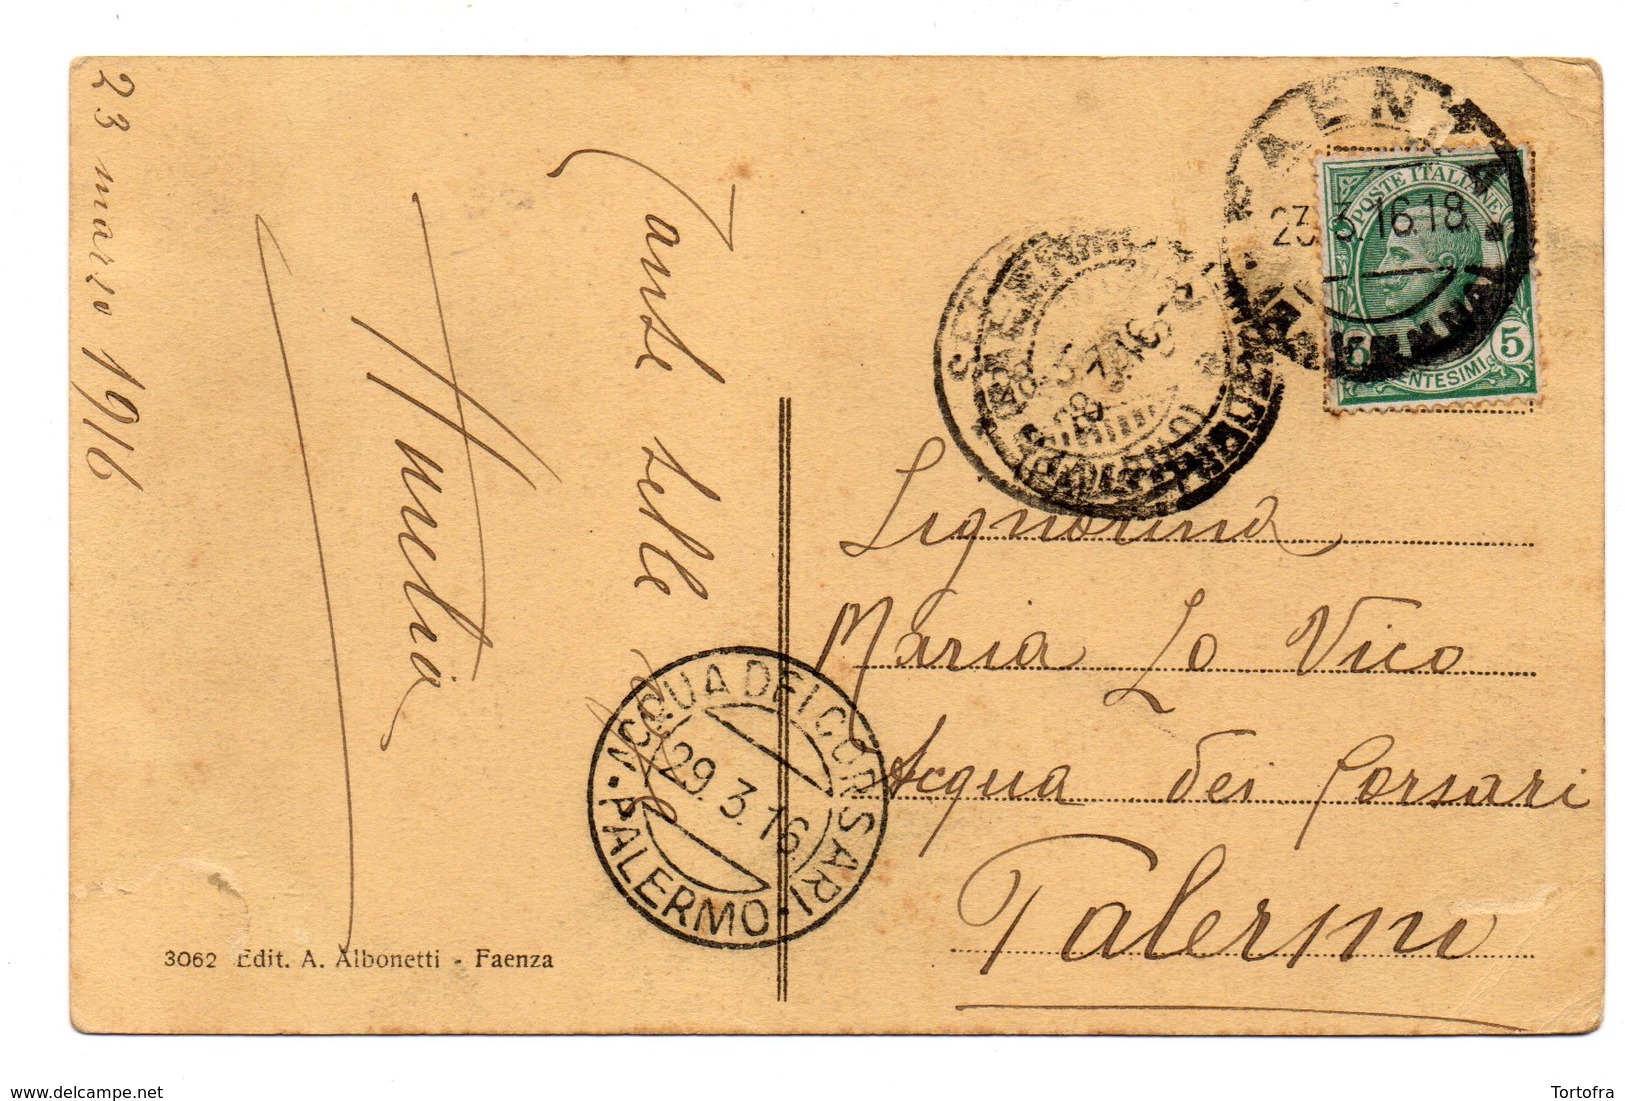 23 marzo 1916
Tante belle
cose
Amelia
3062 Edit. A. Albonetti - Faenza
FAENZA
23.3.16.18
(RAVENNA)
POSTE ITALIANE
5 CENTESIMI 5
PALERMO
ACQUA DEI CORSARI
29.3.16
PALERMO
Signorina
Maria Lo Vico
Acqua dei Corsari
Palermo
delcampe.net
Tortofra